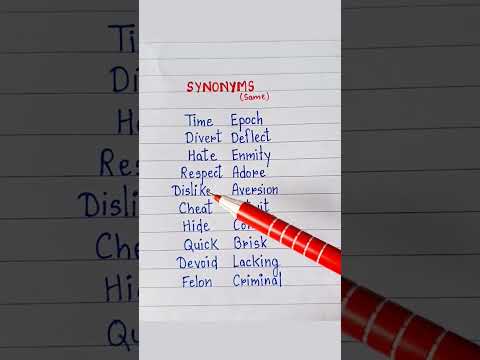 SYNONYMS
(Same)
Time Epoch
Divert Deflect
Hate Enmity
Respect Adore
Dislike Aversion
Cheat
Hide
Quick Brisk
Devoid Lacking
Felon Criminal